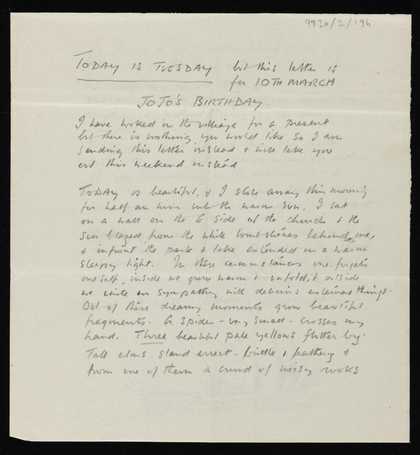 9920/2/196
TODAY IS TUESDAY but this letter is
for 10TH MARCH
JOJO'S BIRTHDAY
I have looked in the village for a present
but there is nothing you would like So I am
sending this letter instead & will take you
out this weekend instead
TODAY is beautiful, & I stole away this morning
for half an hour into the warm sun, I sat
on a wall on the E side of the church & the
sun blazed from the white tombstones behind me,
& in front the park & lake extended in a warm
sleepy light. In these circumstances one forgets
oneself, inside we grow warm & unfold, & outside
we unite in sympathy with delicious external things.
Out of these dreamy moments grow beautiful
fragments. A spider - very small - crosses my
hand. Three beautiful pale yellows flutter by.
Tall elms stand erect - brittle & feathery &
from one of them a crowd of noisy rooks